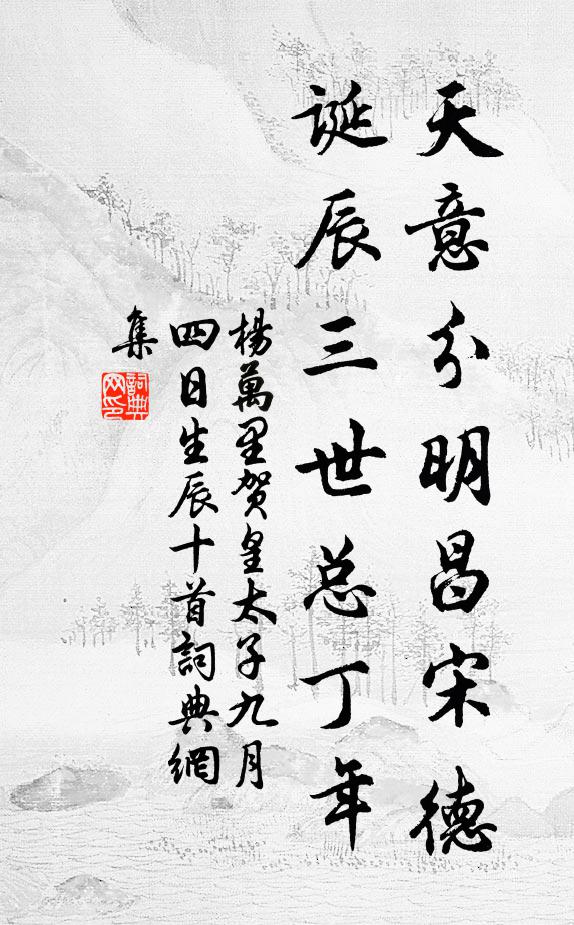 天意分明昌宋德
诞辰三世总丁年
楊萬里贺皇太子九月
四日生辰十首詞典網
集
詞典网印